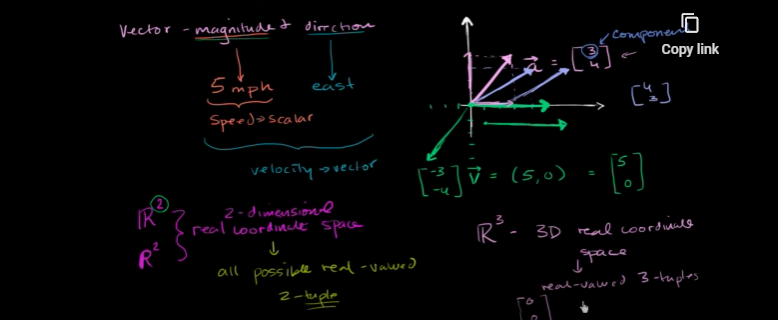 Vector - magnitude & direction
5 mph
east
Speed → scalar
velocity → vector
ℝ²
R²
2-dimensional
real coordinate space
all possible real-valued
2-tuple
component
a = [3 4]
[4 3]
[-3 -4]
v = (5,0) = [5 0]
ℝ³ - 3D real coordinate
space
real-valued 3-tuples
0
0
Copy link